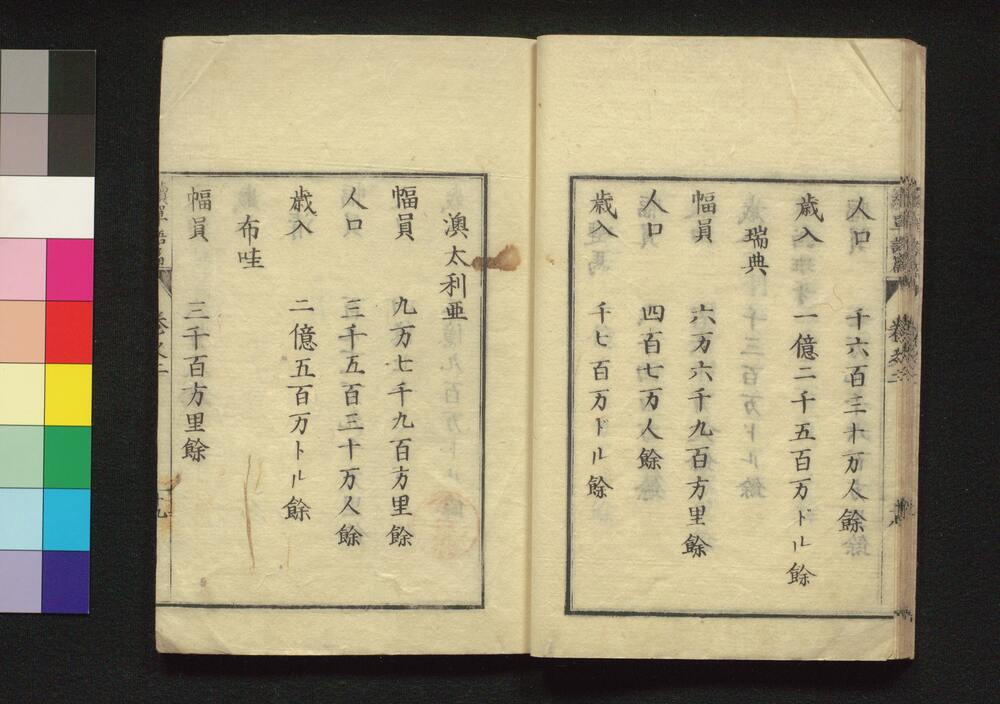 人口 千六百三十万人餘
歳入 一億二千五百万ドル餘
瑞典
幅員 六万六千九百方里餘
人口 四百七万人餘
歳入 千七百万ドル餘
澳太利亜
幅員 九万七千九百方里餘
人口 三千五百三十万人餘
歳入 二億五百万トル餘
布哇
幅員 三千百方里餘